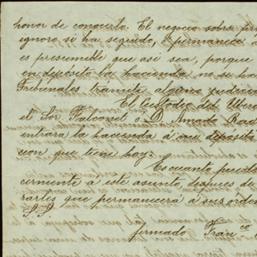 honor de concierto. El negocio sobre pr
ignoro si ha seguido, ó permanece
es presumible que así sea, porque
en depósito la hacienda no se ha
Tribunales trámite alguno judicia
El Custodio del
el Sor. Falconet o D. Amado
entrará la hacienda á un depósito
cion que tiene hoy.
Es cuanto puedo
cerniente á este asunto, despues de
rarles que permanecerá á sus orden
firmado Fran.co